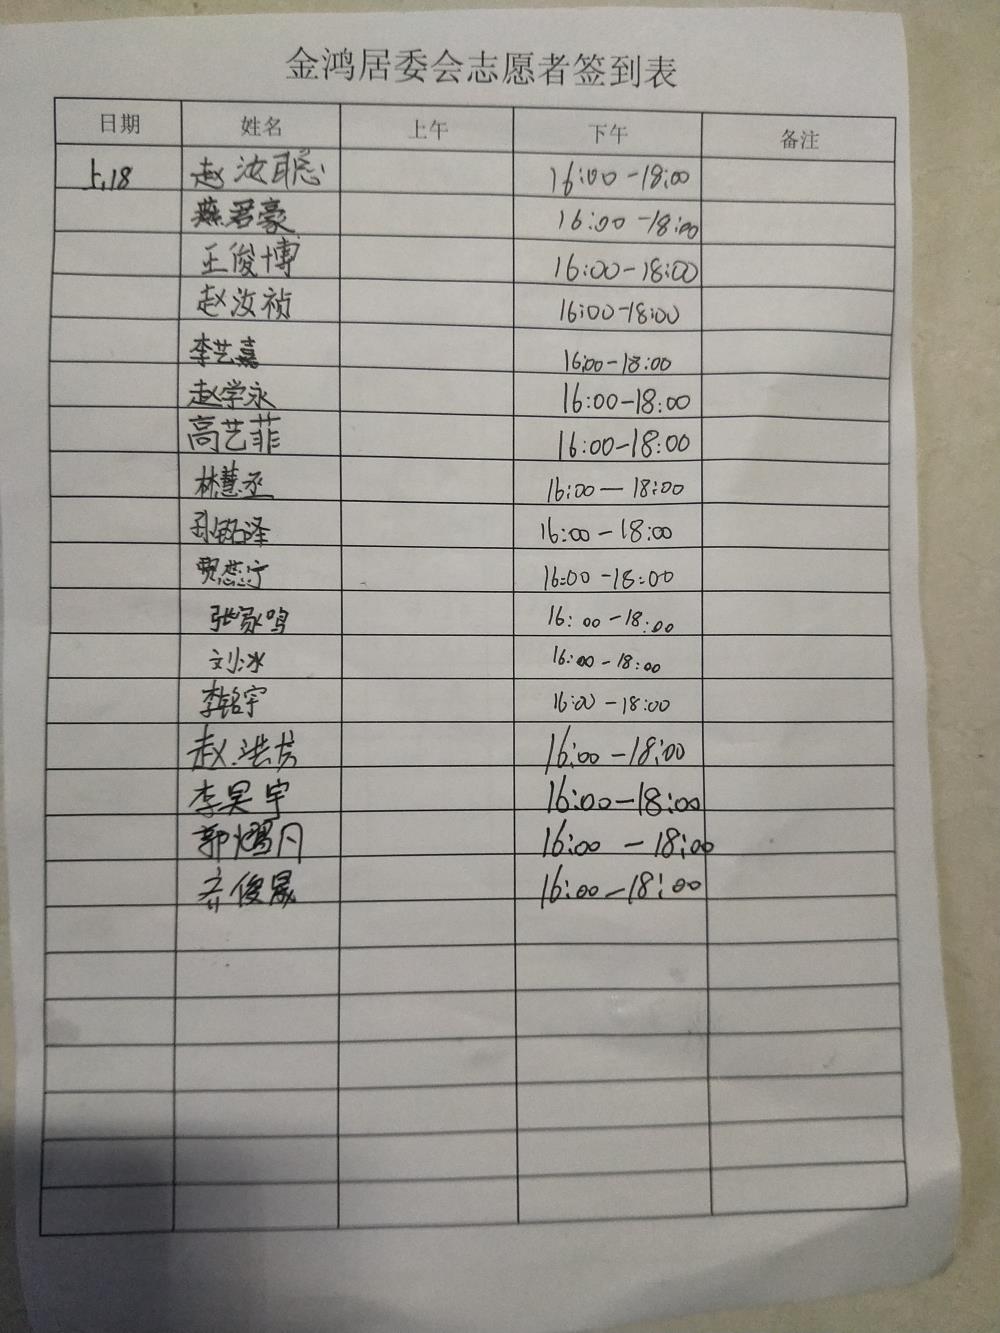 金鸿居委会志愿者签到表
日期 姓名 上午 下午 备注
1.18 赵汝聪 16:00-18:00
燕君豪 16:00-18:00
王俊博 16:00-18:00
赵汝祯 16:00-18:00
李艺嘉 16:00-18:00
赵学永 16:00-18:00
高艺菲 16:00-18:00
林慧丞 16:00-18:00
孙铭泽 16:00-18:00
贾蕊宁 16:00-18:00
张家鸣 16:00-18:00
刘冰 16:00-18:00
李铭宇 16:00-18:00
赵洪 16:00-18:00
李昊宇 16:00-18:00
郭 16:00-18:00
齐俊晟 16:00-18:00